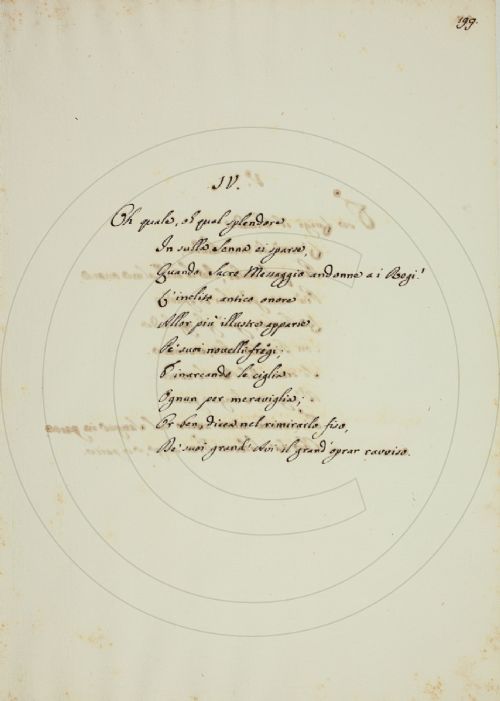 199.
IV.
Oh quale, oh qual splendore
In sulla Senna ei sparse,
Quando Sacro Messaggio andonne a i Regi!
L'inclito antico onore
Allor più illustre apparse
De' suoi novelli fregi;
E inarcando le ciglia
Ognun per meraviglia;
Or ben, dicea nel rimirarlo fiso,
De' suoi grand' Avi il grand' oprar ravviso.